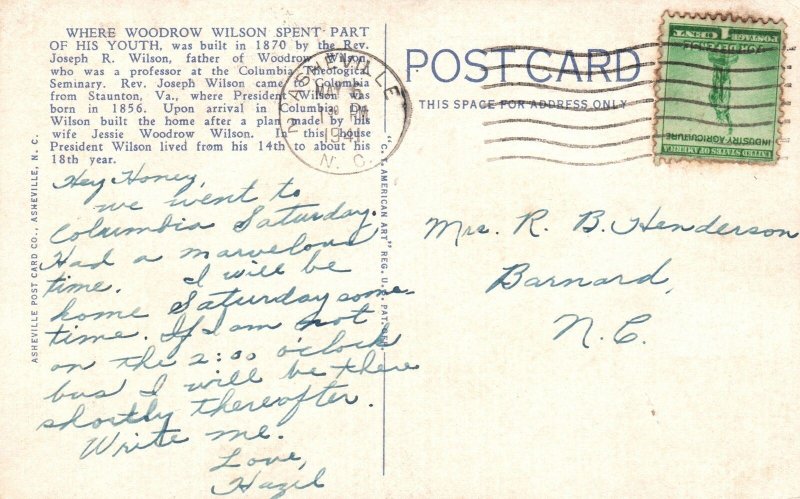 WHERE WOODROW WILSON SPENT PART
OF HIS YOUTH, was built in 1870 by the Rev.
Joseph R. Wilson, father of Woodrow Wilson,
who was a professor at the Columbia Theological
Seminary. Rev. Joseph Wilson came to Columbia
from Staunton, Va., where President Wilson was
born in 1856. Upon arrival in Columbia Dr.
Wilson built the home after a plan made by his
wife Jessie Woodrow Wilson. In this house
President Wilson lived from his 14th to about his
18th year.
Hey Honey,
we went to
Columbia Saturday.
Had a marvelous
time. I will be
home Saturday some
time. If I am not
on the 2:00 o'clock
bus I will be there
shortly thereafter.
Write me.
Love,
Hazel
ASHEVILLE POST CARD CO., ASHEVILLE, N. C.
"C. T. AMERICAN ART" REG. U. S. PAT. OFF.
ASHEVILLE
MAY
PM
1941
N. C.
POST CARD
THIS SPACE FOR ADDRESS ONLY
UNITED STATES OF AMERICA
INDUSTRY · AGRICULTURE
FOR DEFENSE
POSTAGE 1 CENT
Mrs. R. B. Henderson
Barnard,
N.C.